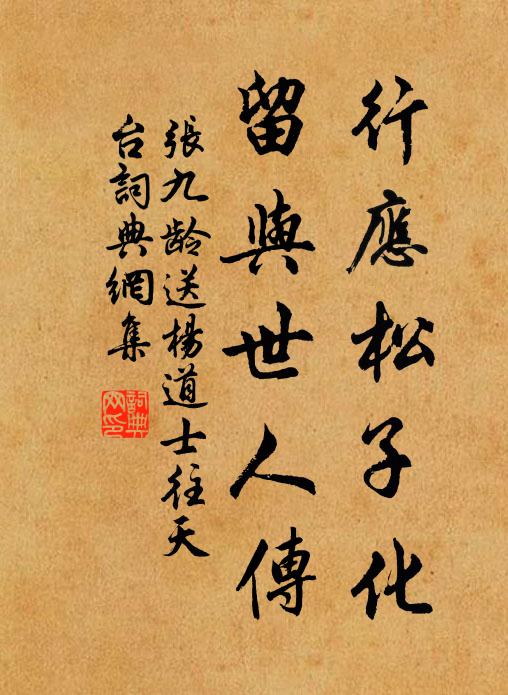 行應松子化
留與世人傳
張九龄送楊道士往天
台詞典網集
詞典网印